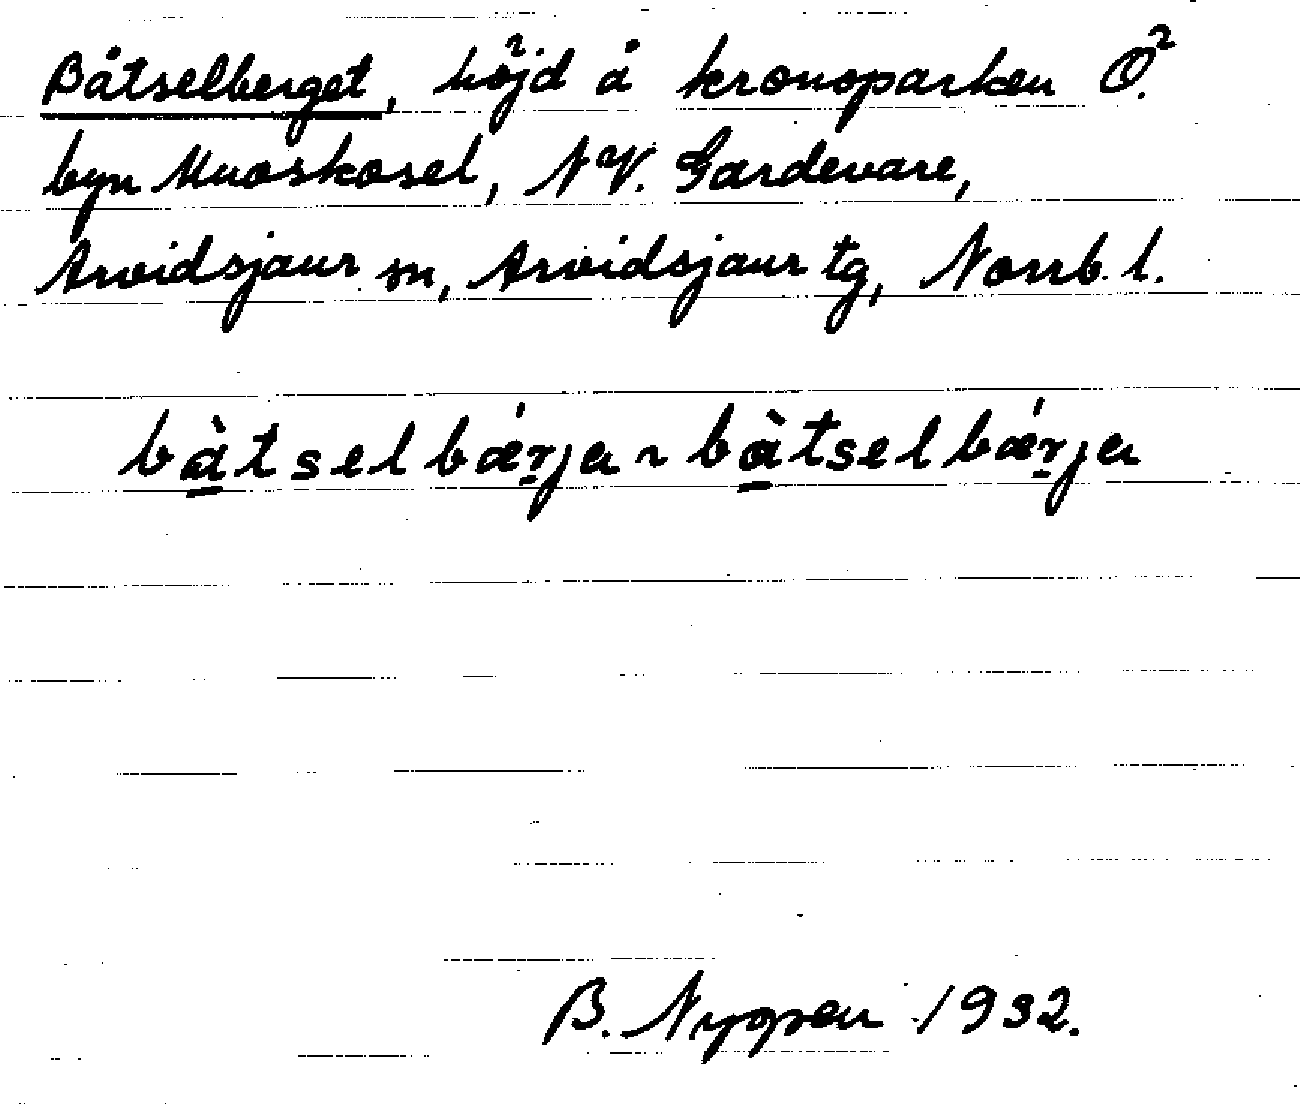 Båtselberget, höjd å kronoparken Ö.
byn Muoskosel, NV. Gardevare,
Arvidsjaur sn, Arvidsjaur tg, Norrb. l.
bàtselbǽrja ~ bàtselbǽrja
B. Nygren 1932.